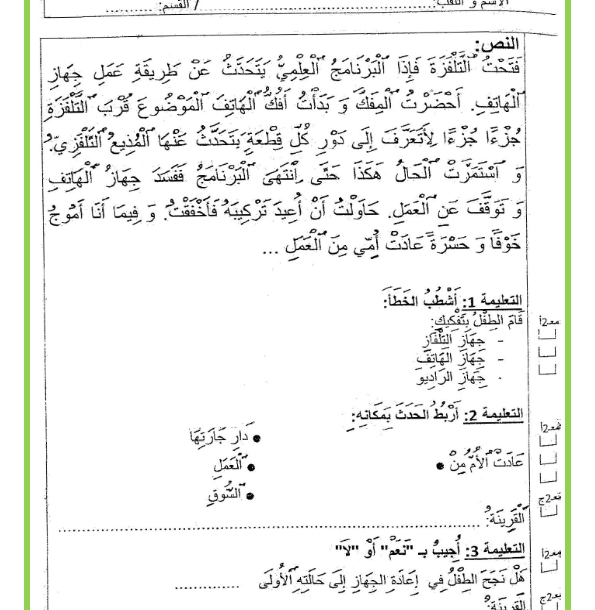 الاسم و اللقب:.............................................. / القسم: ..............
النص:
فَتَحْتُ ٱلتَّلْفَزَةَ فَإِذَا ٱلْبَرْنَامَجُ ٱلْعِلْمِيُّ يَتَحَدَّثُ عَنْ طَرِيقَةِ عَمَلِ جِهَازِ
ٱلْهَاتِفِ. أَحْضَرْتُ ٱلْمِفَكَّ وَ بَدَأْتُ أَفُكُّ ٱلْهَاتِفَ ٱلْمَوْضُوعَ قُرْبَ ٱلتَّلْفَزَةِ
جُزْءًا جُزْءًا لِأَتَعَرَّفَ إِلَى دَوْرِ كُلِّ قِطْعَةٍ يَتَحَدَّثُ عَنْهَا ٱلْمُذِيعُ ٱلتَّلْفَزِيُّ.
وَ ٱسْتَمَرَّتْ ٱلْحَالُ هَكَذَا حَتَّى ٱِنْتَهَى ٱلْبَرْنَامَجُ فَفَسَدَ جِهَازُ ٱلْهَاتِفِ
وَ تَوَقَّفَ عَنِ ٱلْعَمَلِ. حَاوَلْتُ أَنْ أُعِيدَ تَرْكِيبَهُ فَأَخْفَقْتُ. وَ فِيمَا أَنَا أَمُوجُ
خَوْفًا وَ حَسْرَةً عَادَتْ أُمِّي مِنَ ٱلْعَمَلِ ...
التعليمة 1: أَشْطُبُ الخَطَأَ:
قَامَ الطِفْلُ بِتَفْكِيكِ:
مع2أ
- جِهَازِ التِّلْفَازِ
- جِهَازَ الهَاتِفَ
- جِهَازِ الرَّادِيو
التعليمة 2: أَرْبُطُ الحَدَثَ بِمَكَانِهِ:
مع2أ
• دَارِ جَارَتِهَا
عَادَتْ ٱلْأُمُّ مِنْ • • ٱلْعَمَلِ
• ٱلسُّوقِ
مع2ج
ٱلْقَرِينَةُ: ..............................................................................
التعليمة 3: أُجِيبُ بـ "نَعَمْ" أَوْ "لَا"
مع2أ
هَلْ نَجَحَ الطِفْلُ فِي إِعَادَةِ الجِهَازِ إِلَى حَالَتِهِ ٱلْأُولَى ..............
مع2ج
القَرِينَةُ: